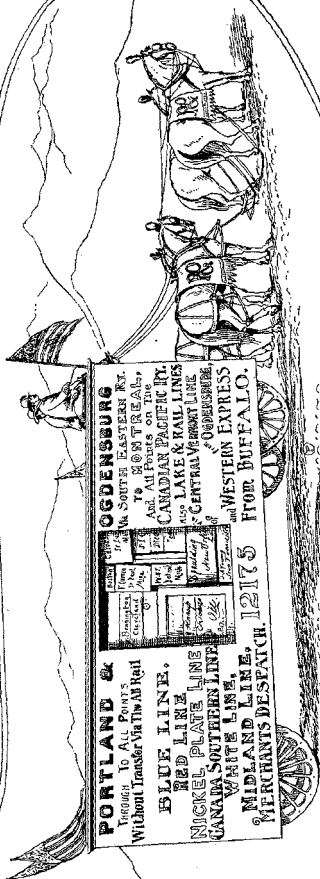 PORTLAND & OGDENSBURG
THROUGH TO ALL POINTS
Without Transfer Via The All Rail
BLUE LINE,
RED LINE
NICKEL PLATE LINE
CANADA SOUTHERN LINE
WHITE LINE,
MIDLAND LINE,
MERCHANTS DESPATCH
12175
Via SOUTH EASTERN RY.
TO MONTREAL,
And All Points on the
CANADIAN PACIFIC RY.
also LAKE & RAIL LINES
of CENTRAL VERMONT LINE
Via OGDENSBURG,
and WESTERN EXPRESS
From BUFFALO.
P&O
RR
P&O
RR